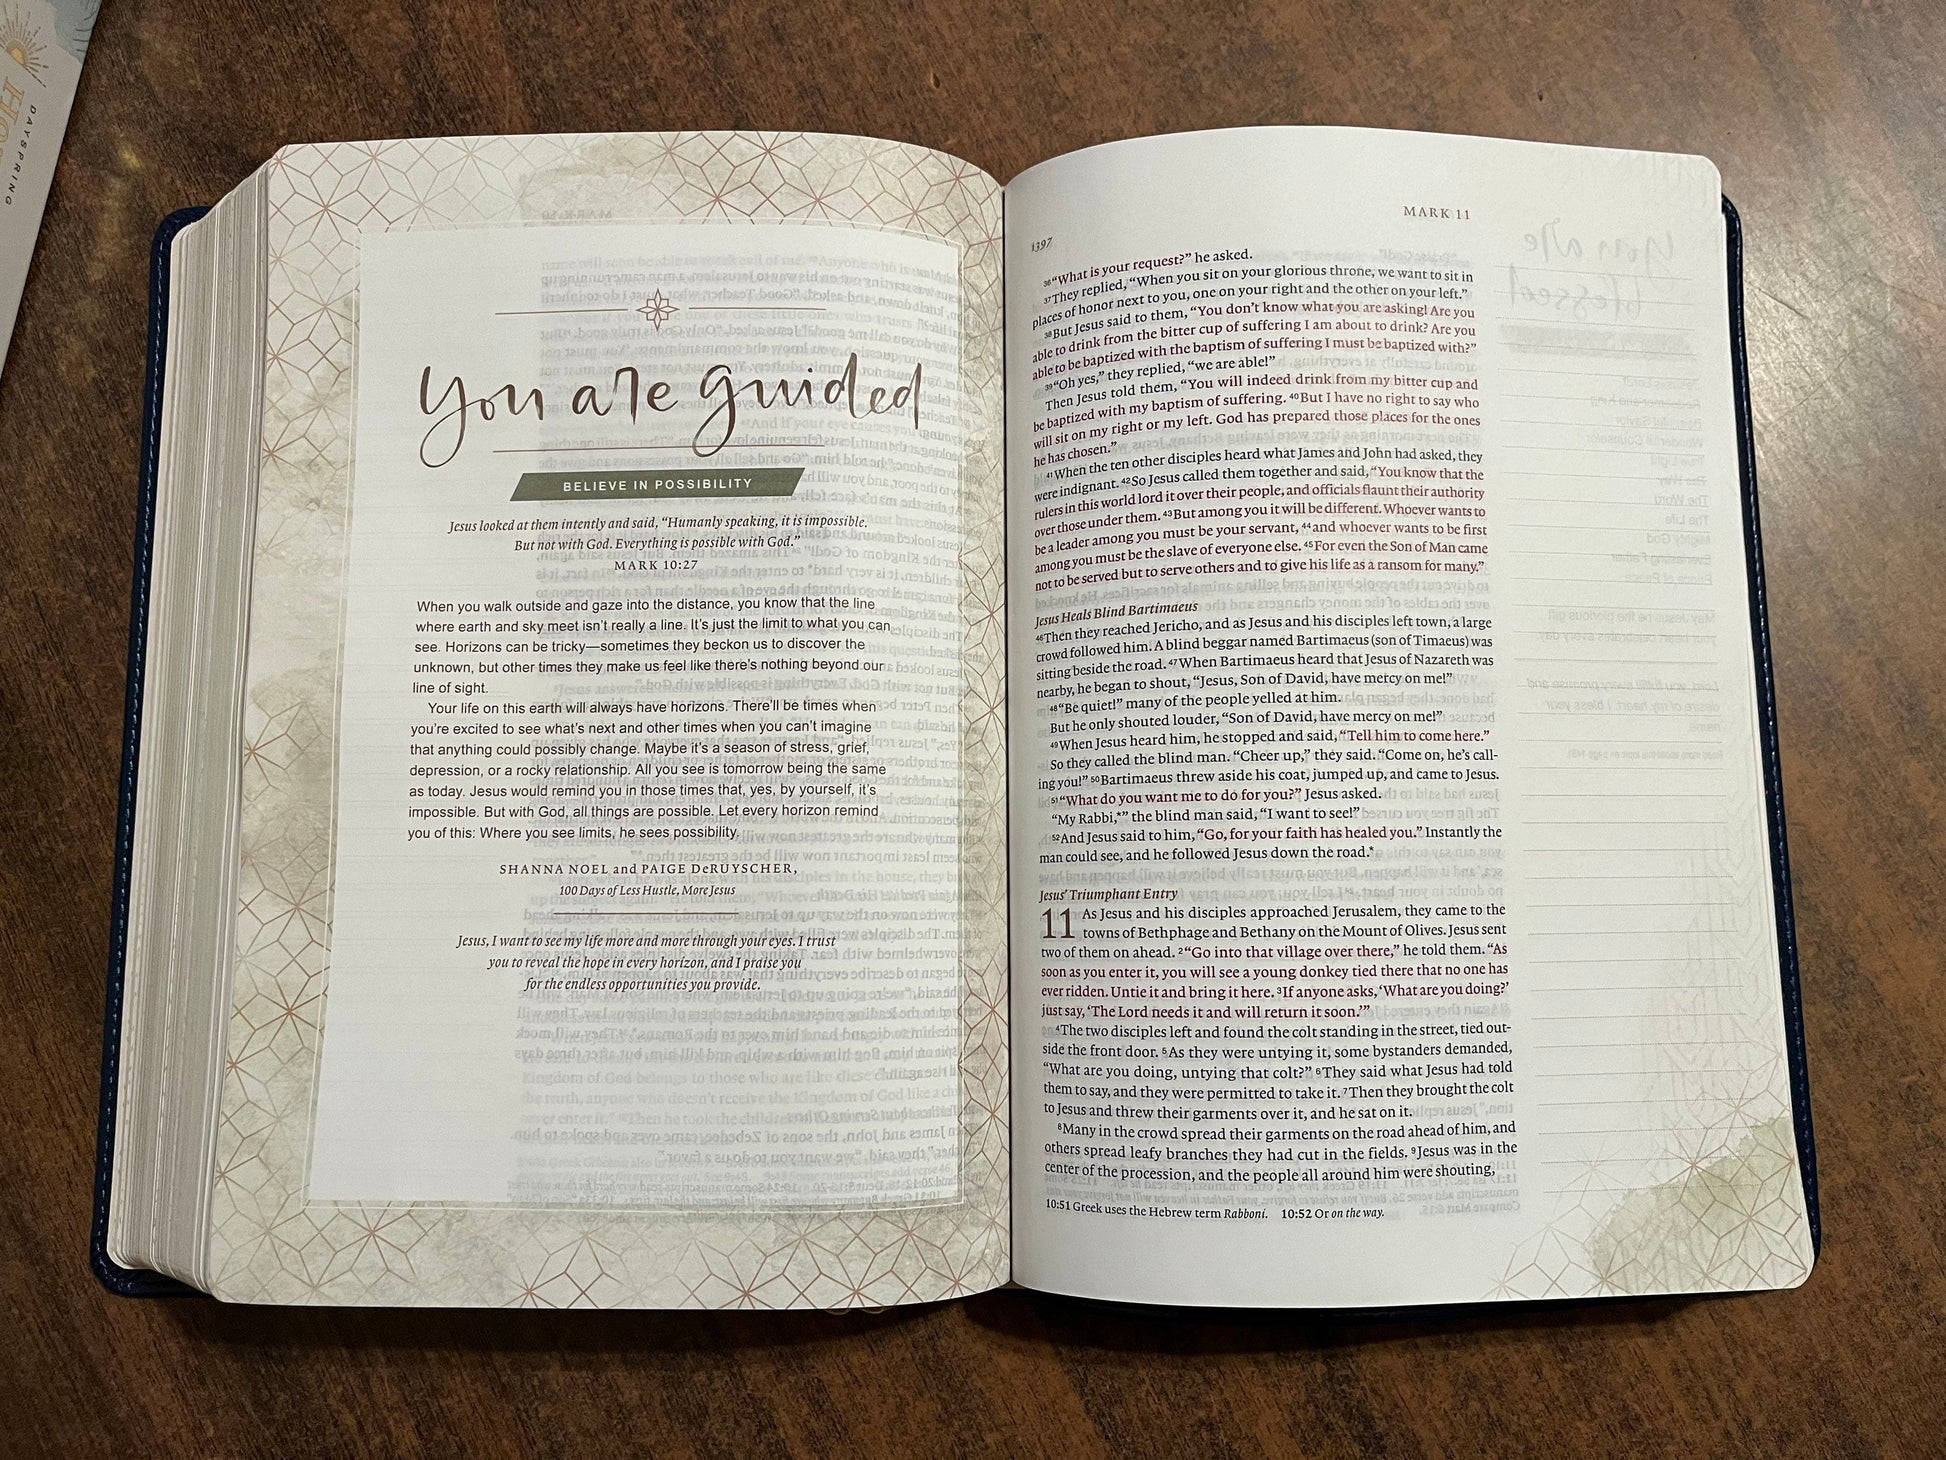 DAYSPRING
you are guided
BELIEVE IN POSSIBILITY
Jesus looked at them intently and said, “Humanly speaking, it is impossible.
But not with God. Everything is possible with God.”
MARK 10:27
When you walk outside and gaze into the distance, you know that the line
where earth and sky meet isn’t really a line. It’s just the limit to what you can
see. Horizons can be tricky—sometimes they beckon us to discover the
unknown, but other times they make us feel like there’s nothing beyond our
line of sight.
Your life on this earth will always have horizons. There’ll be times when
you’re excited to see what’s next and other times when you can’t imagine
that anything could possibly change. Maybe it’s a season of stress, grief,
depression, or a rocky relationship. All you see is tomorrow being the same
as today. Jesus would remind you in those times that, yes, by yourself, it’s
impossible. But with God, all things are possible. Let every horizon remind
you of this: Where you see limits, he sees possibility.
SHANNA NOEL and PAIGE DeRUYSCHER,
100 Days of Less Hustle, More Jesus
Jesus, I want to see my life more and more through your eyes. I trust
you to reveal the hope in every horizon, and I praise you
for the endless opportunities you provide.
1397
MARK 11
36“What is your request?” he asked.
37They replied, “When you sit on your glorious throne, we want to sit in
places of honor next to you, one on your right and the other on your left.”
38But Jesus said to them, “You don’t know what you are asking! Are you
able to drink from the bitter cup of suffering I am about to drink? Are you
able to be baptized with the baptism of suffering I must be baptized with?”
39“Oh yes,” they replied, “we are able!”
Then Jesus told them, “You will indeed drink from my bitter cup and
be baptized with my baptism of suffering. 40But I have no right to say who
will sit on my right or my left. God has prepared those places for the ones
he has chosen.”
41When the ten other disciples heard what James and John had asked, they
were indignant. 42So Jesus called them together and said, “You know that the
rulers in this world lord it over their people, and officials flaunt their authority
over those under them. 43But among you it will be different. Whoever wants to
be a leader among you must be your servant, 44and whoever wants to be first
among you must be the slave of everyone else. 45For even the Son of Man came
not to be served but to serve others and to give his life as a ransom for many.”
Jesus Heals Blind Bartimaeus
46Then they reached Jericho, and as Jesus and his disciples left town, a large
crowd followed him. A blind beggar named Bartimaeus (son of Timaeus) was
sitting beside the road. 47When Bartimaeus heard that Jesus of Nazareth was
nearby, he began to shout, “Jesus, Son of David, have mercy on me!”
48“Be quiet!” many of the people yelled at him.
But he only shouted louder, “Son of David, have mercy on me!”
49When Jesus heard him, he stopped and said, “Tell him to come here.”
So they called the blind man. “Cheer up,” they said. “Come on, he’s call-
ing you!” 50Bartimaeus threw aside his coat, jumped up, and came to Jesus.
51“What do you want me to do for you?” Jesus asked.
“My Rabbi,*” the blind man said, “I want to see!”
52And Jesus said to him, “Go, for your faith has healed you.” Instantly the
man could see, and he followed Jesus down the road.*
Jesus’ Triumphant Entry
11 As Jesus and his disciples approached Jerusalem, they came to the
towns of Bethphage and Bethany on the Mount of Olives. Jesus sent
two of them on ahead. 2“Go into that village over there,” he told them. “As
soon as you enter it, you will see a young donkey tied there that no one has
ever ridden. Untie it and bring it here. 3If anyone asks, ‘What are you doing?’
just say, ‘The Lord needs it and will return it soon.’”
4The two disciples left and found the colt standing in the street, tied out-
side the front door. 5As they were untying it, some bystanders demanded,
“What are you doing, untying that colt?” 6They said what Jesus had told
them to say, and they were permitted to take it. 7Then they brought the colt
to Jesus and threw their garments over it, and he sat on it.
8Many in the crowd spread their garments on the road ahead of him, and
others spread leafy branches they had cut in the fields. 9Jesus was in the
center of the procession, and the people all around him were shouting,
10:51 Greek uses the Hebrew term Rabboni. 10:52 Or on the way.